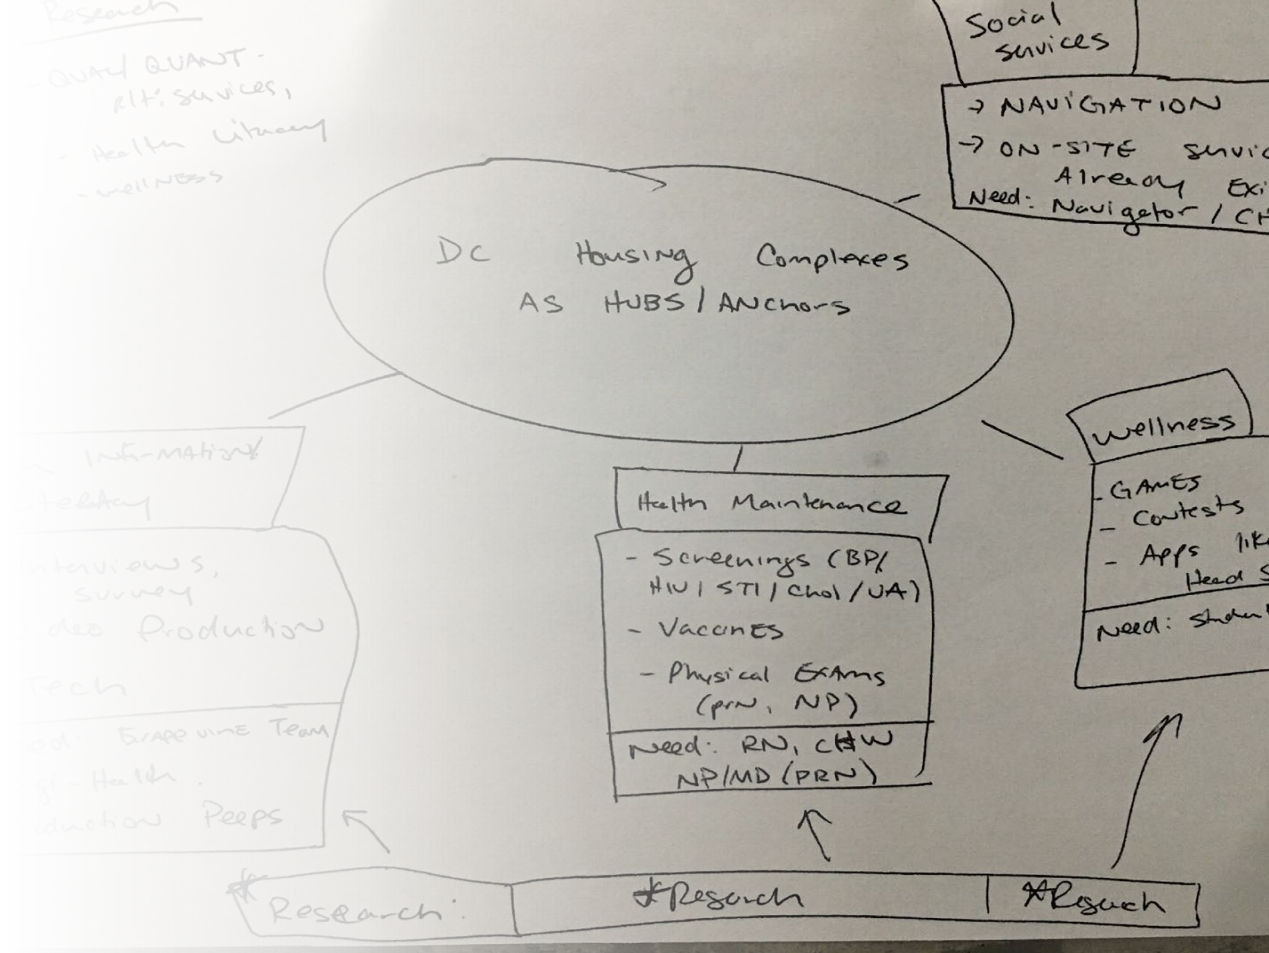 Research
- QUAL/ QUANT.
services,
- Health Literacy
- wellNESS
Social
services
→ NAViGATION
→ ON-SITE
Already
Need: Navigator /
DC Housing Complexes
AS HUBS / ANchors
INFORMATION/
Interviews,
survey
Production
Tech
Grapevine Team
- Health
Peeps
Health Maintenance
- Screenings (BP/
HIV / STI / Chol / UA)
- VaccinES
- Physical Exams
(prN, NP)
Need: RN, CHW
NP/MD (PRN)
wellness
- GAMES
- Contests
- Apps
Head
Need:
*Research:
*Research
*Research